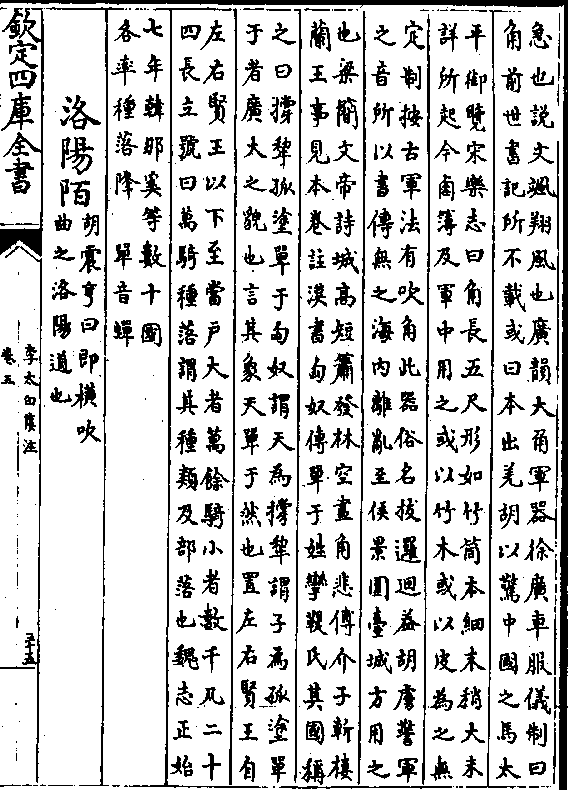 急也説文颯翔風也廣韻大角軍器徐廣車服儀制曰
角前世書記所不載或曰本出羌胡以驚中國之馬太
平御覽宋樂志曰角長五尺形如竹筒本細末稍大未
詳所起今鹵簿及軍中用之或以竹木或以皮為之無
定制按古軍法有吹角此器俗名拔邏迴益胡虜警軍
之音所以書傳無之海内離亂至侯景圍臺城方用之
也梁簡文帝詩城高短簫發林空畫角悲傅介子斬樓
蘭王事見本卷註漢書匈奴傳單于姓攣鞮氏其國稱
之曰撐犂孤塗單于匈奴謂天為撐犂謂子為孤塗單
于者廣大之貌也言其象天單于然也置左右賢王自
左右賢王以下至當戶大者萬餘騎小者數千凡二十
四長立號曰萬騎種落謂其種類及部落也魏志正始
七年韓那奚等數十國
各率種落降 單音蟬
洛陽陌 胡震亨曰即橫吹
曲之洛陽道也
欽定四庫全書
李太白集注
卷五
二十五